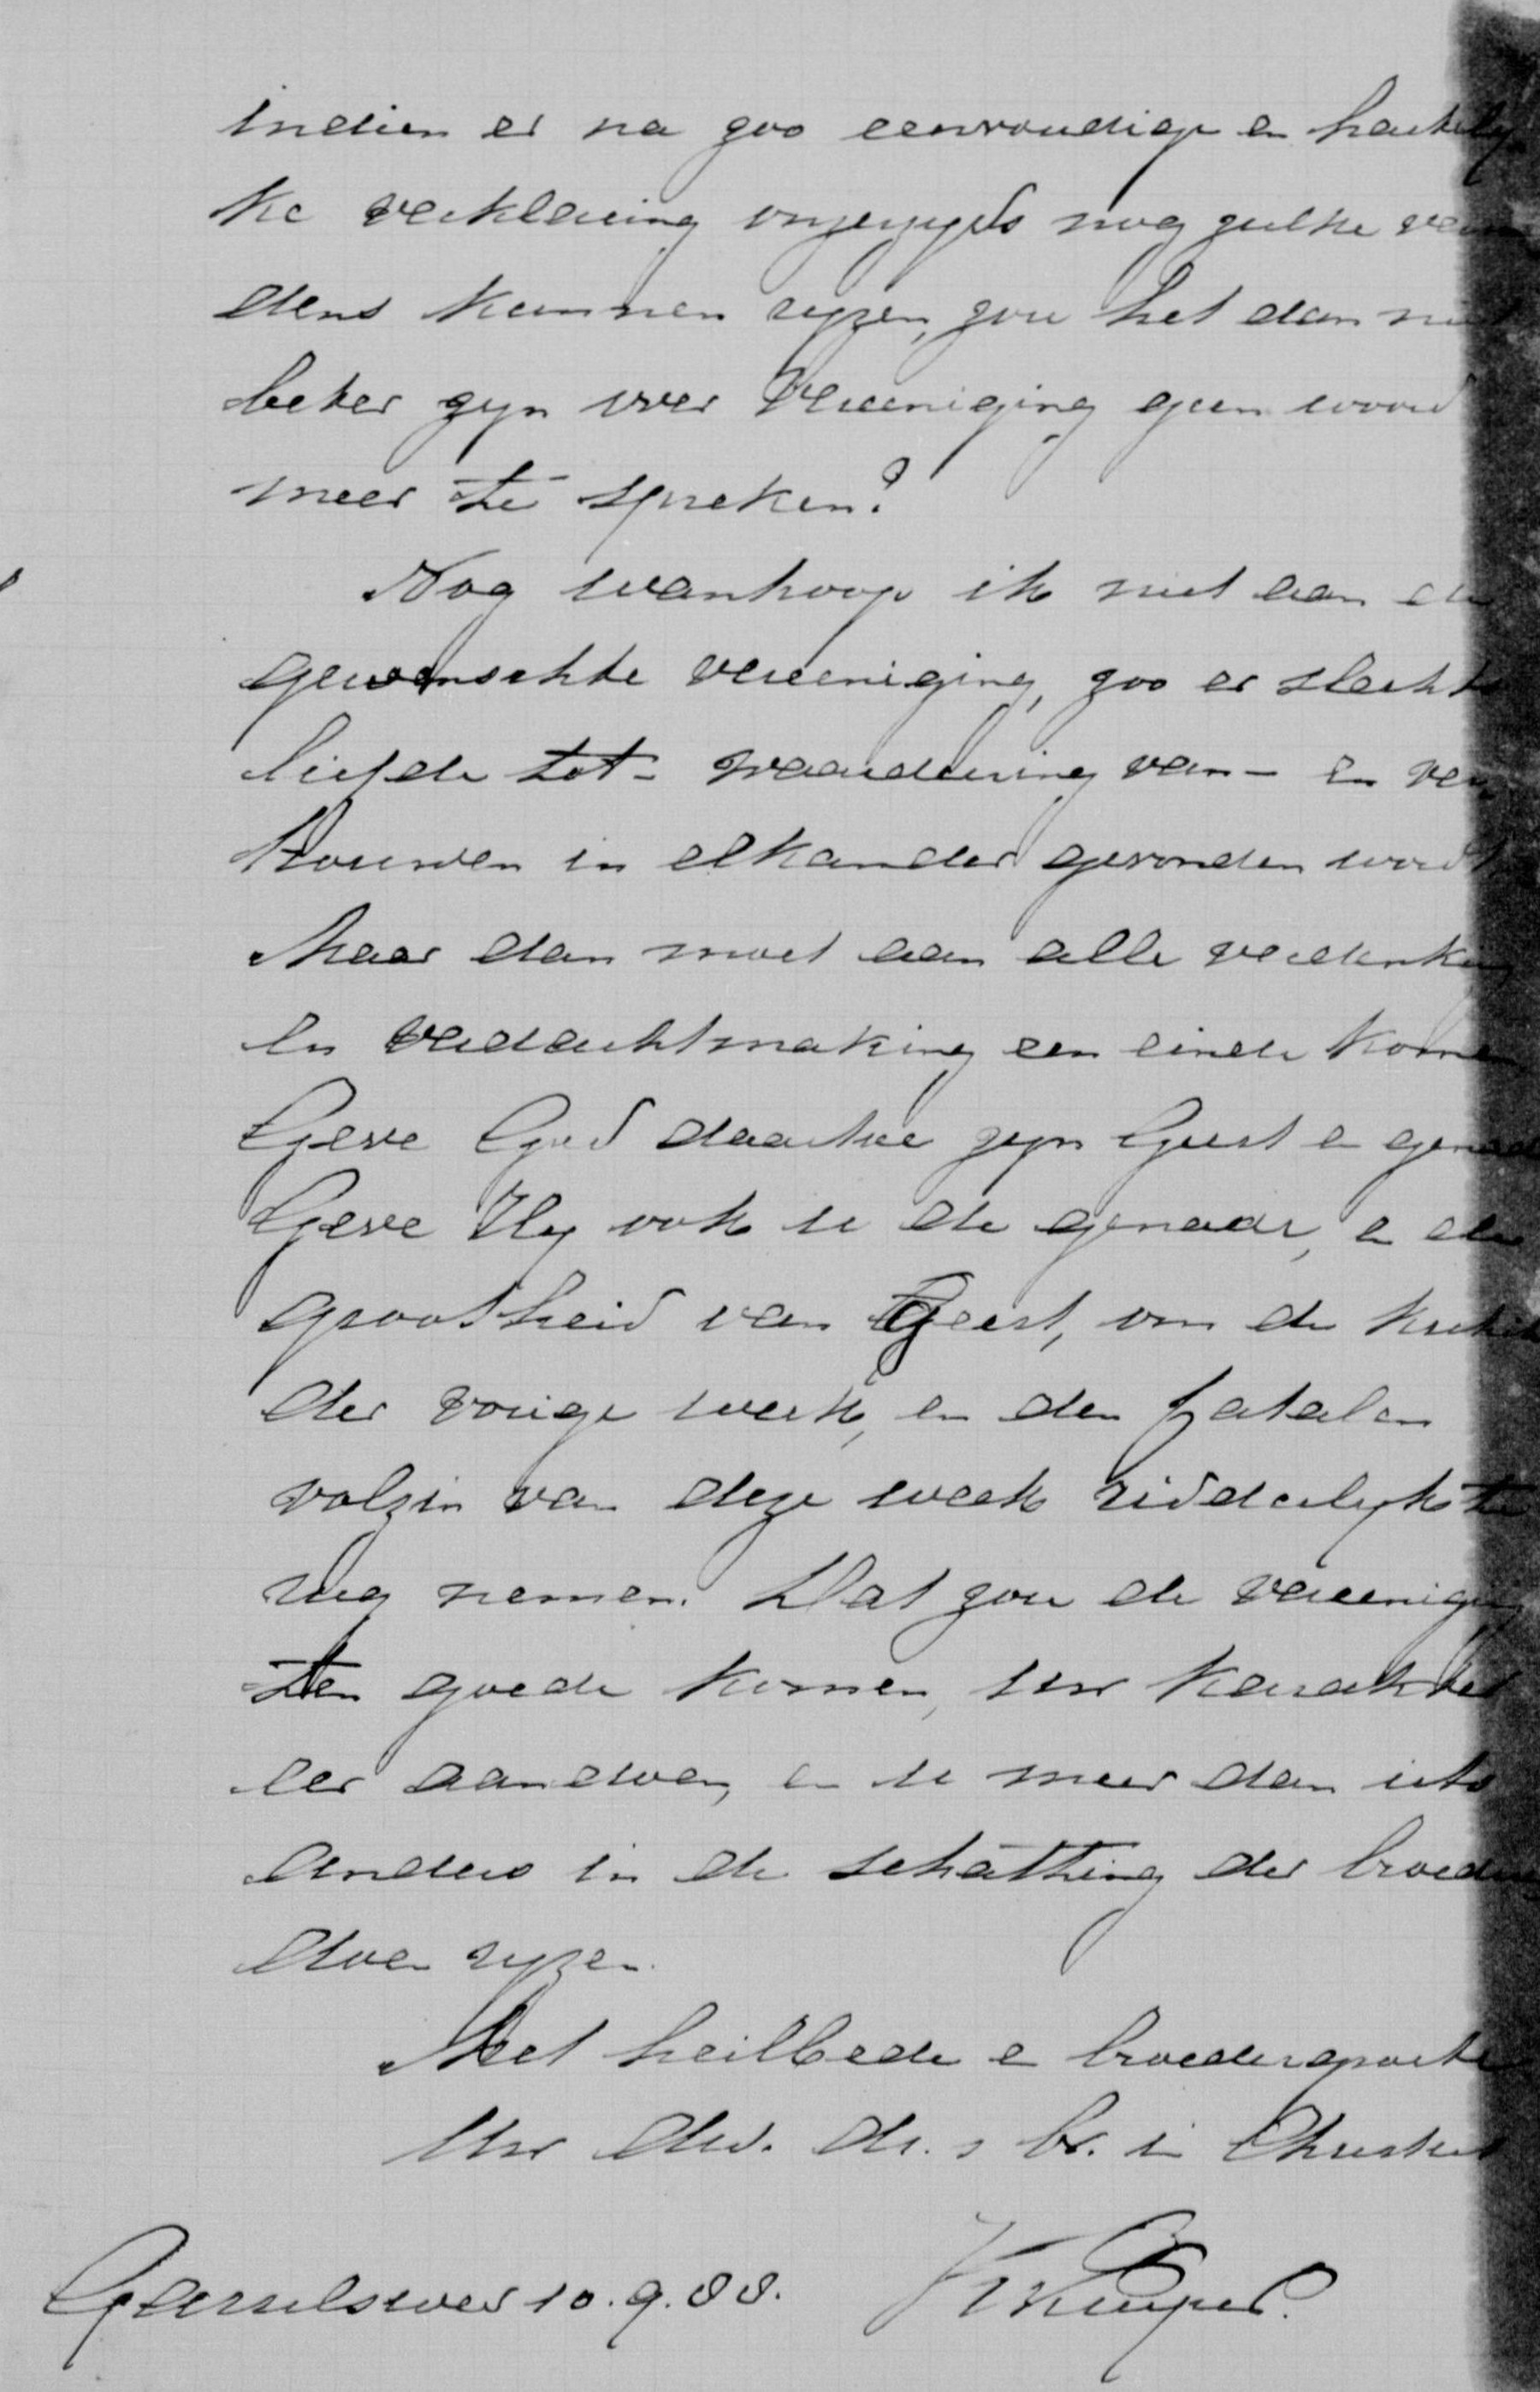 indien er na zoo eenvoudige en hartely
ke verklaring onzerzyds nog zulke
dens kunnen ryzen, zou het dan niet
beter zyn over Vereeniging geen woord
meer te spreken?
Nog wanhoop ik niet aan de
gewenschte vereeniging, zoo er slechts
liefde tot - waardeering van - en ver
trouwen in elkander gevonden wordt
Maar dan moet aan alle verdenking
en verdachtmaking een einde komen
Geve God daartoe zyn Geest en genade
Geve Hy ook u de genade, en de
grootheid van Geest, om de kritiek
der vorige week, en den fatalen
volzin van deze week ridderlyk te
rug nemen. Dat zou de vereeniging
ten goede komen, uw karakter
eer aandoen, en u meer dan iets
anders in de schatting der broeders
doen ryzen.
Met heilbede en broedergroete
Uw dw. dr. en br. in Christus
Garrelsweer 10.9.88. Kuiper.